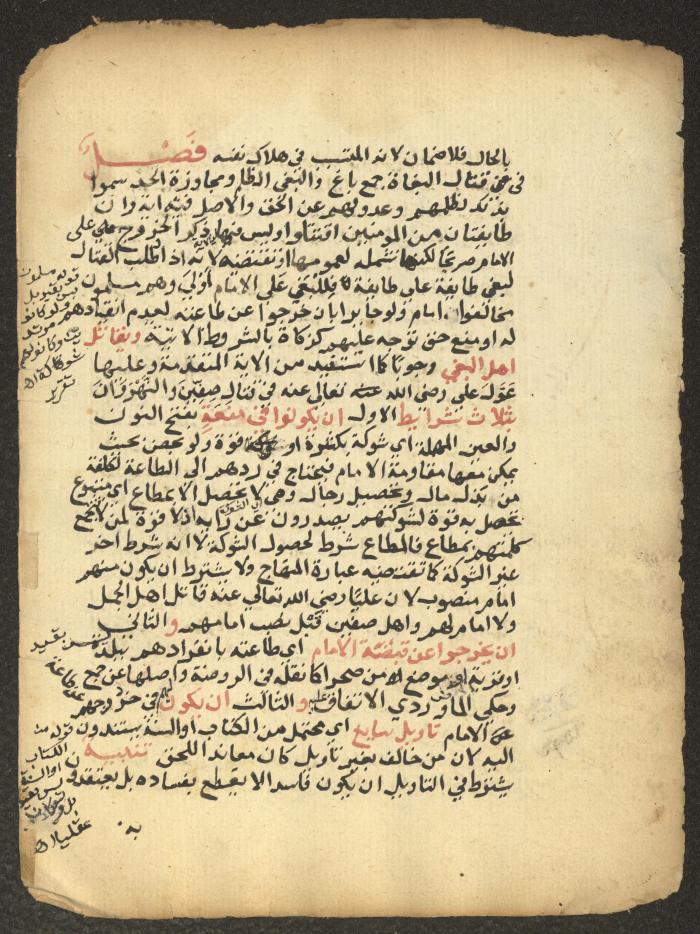 بالحال فلا ضمان لانه المتسبب في هلاك نفسه فصل
في قتال البغاة جمع باغ والبغي الظلم ومجاوزة الحد سموا
بذلك لظلمهم وعدولهم عن الحق والاصل فيه اية وان
طايفتان من المومنين اقتتلوا وليس فيها ذكر الخروج على
الامام صريحا لكنها تشمله لعمومها او تقتضيه لانه اذا طلب القتال
لبغي طايفة على طايفة فللبغي على الامام اولى وهم مسلمون
مخالفوا امام ولو جايرا بان خرجوا عن طاعته بعدم انقيادهم
له او منع حق توجه عليهم كزكاة بالشروط الاتية ويقاتل
اهل البغي وجوبا كما استفيد من الاية المتقدمة وعليها
عول علي رضي الله عنه تعالى عنه في قتال صفين والنهروان
بثلاث شرايط الاول ان يكونوا في منعة بفتح النون
والعين المهملة اي شوكة بكثرة او قوة ولو بحصن بحيث
يمكن معها مقاومة الامام فيحتاج في ردهم الى الطاعة لكلفة
من بذل مال وتحصيل رجال وهي لا تحصل الا بمطاع اي متبوع
تحصل به قوة لشوكتهم يصدرون عن رايه اذ لا قوة لمن لا تجمع
كلمتهم بمطاع فالمطاع شرط لحصول الشوكة لا انه شرط اخر
غير الشوكة كما تقتضيه عبارة المنهاج ولا يشترط ان يكون منهم
امام منصوب لان عليا رضي الله تعالى عنه قاتل اهل الجمل
ولا امام لهم واهل صفين قبل نصب امامهم والثاني
ان يخرجوا عن قبضة الامام اي طاعته بانفرادهم ببلدة
او قرية او موضع من صحرا كما نقله في الروضة واصلها عن جمع
وحكي الماوردي الاتفاق عليه والثالث ان يكون لهم في خروجهم
عن الامام تاويل سايغ اي محتمل من الكتاب او السنة يستندون
اليه لان من خالف بغير تاويل كان معاند اللحق تنبيه
يشترط في التاويل ان يكون فاسدا لا يقطع بفساده بل يعتقدون
به